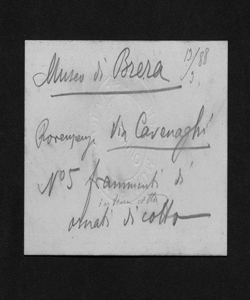 Museo di Brera 13/88
3
Provenienza Via Cavenaghi
N° 5 frammenti di
in terra cotta
ornati di cotto